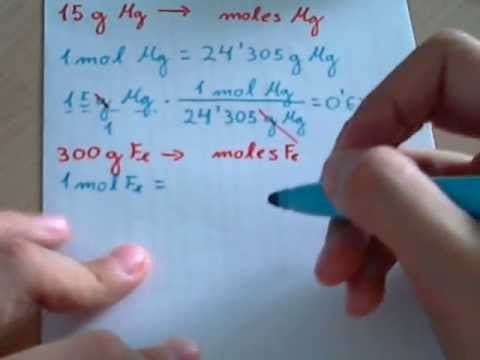 15 g Mg → moles Mg
1 mol Mg = 24'305 g Mg
15 g Mg · 1 mol Mg = 0'6
1 24'305 g Mg
300 g Fe → moles Fe
1 mol Fe =